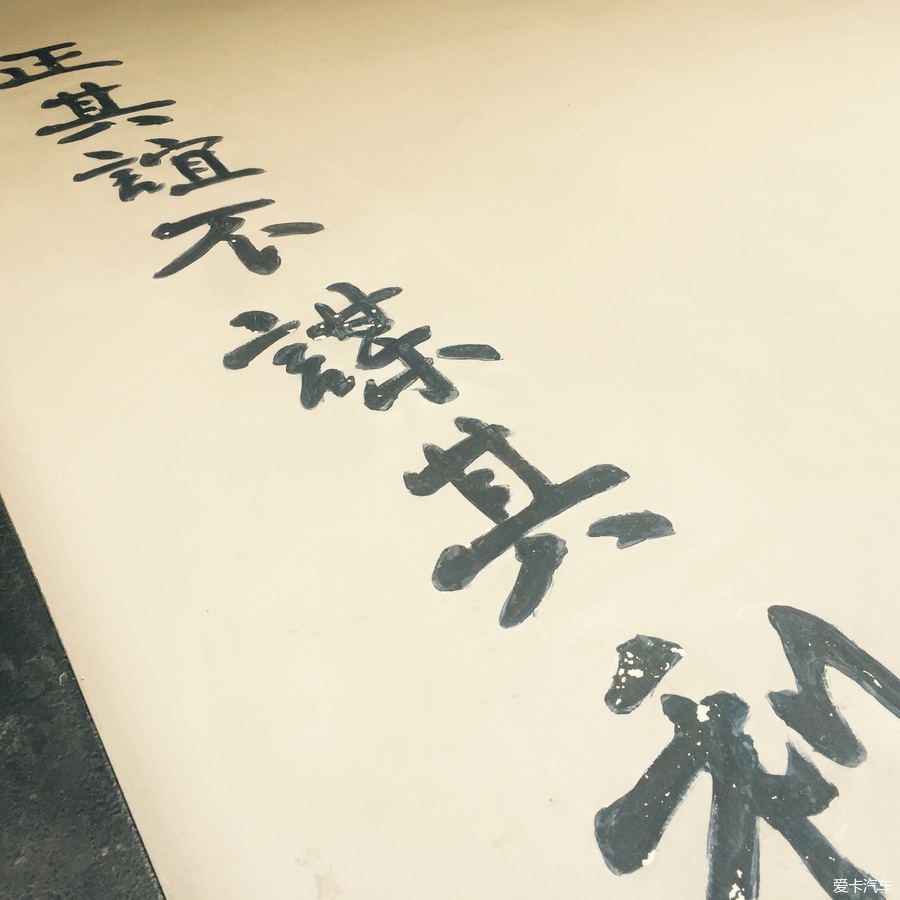 正其誼不謀其利
爱卡汽车